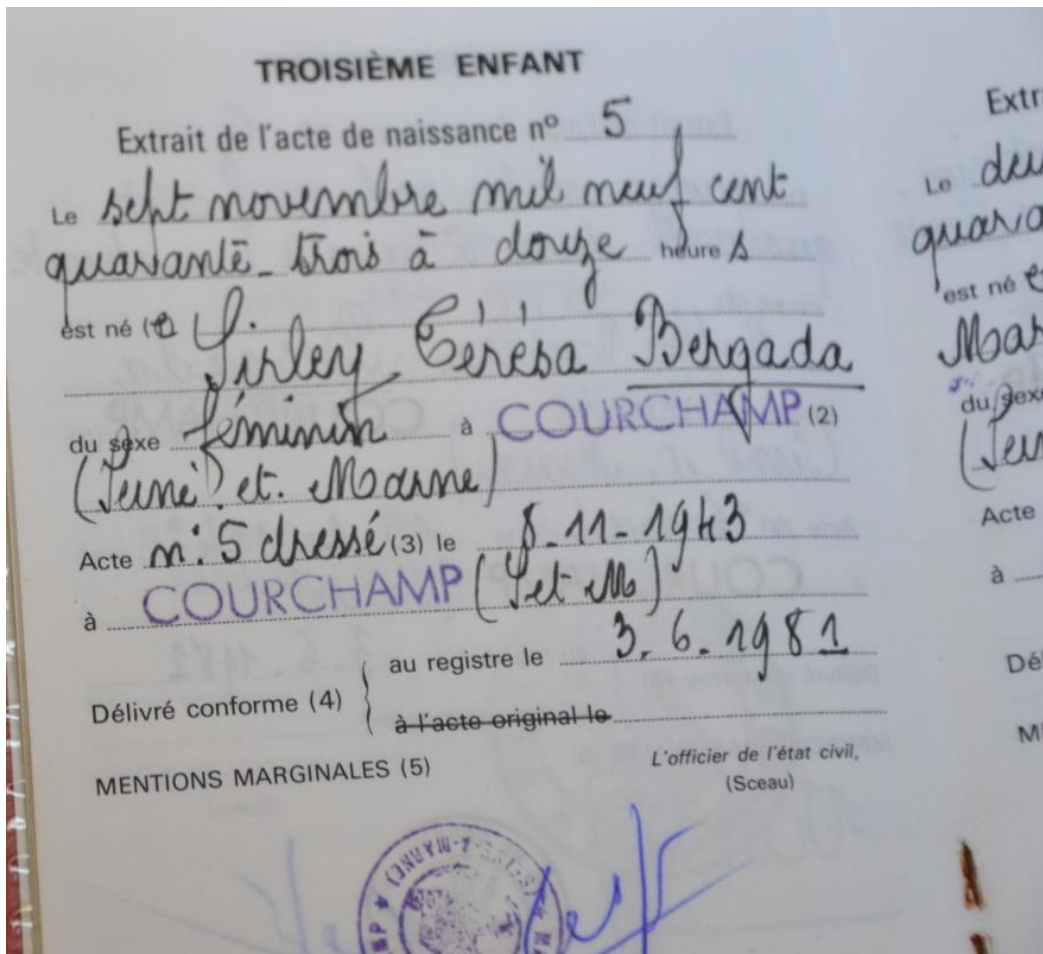 TROISIÈME ENFANT
Extrait de l'acte de naissance nº 5
Le sept novembre mil neuf cent
quarante-trois à douze heures
est né (e Sirley Térésa Bergada
du sexe féminin à COURCHAMP (2)
(Seine et Marne)
Acte n: 5 dressé (3) le 8-11-1943
à COURCHAMP (S et M)
Délivré conforme (4) au registre le 3.6.1981
à l'acte original le
MENTIONS MARGINALES (5)
L'officier de l'état civil,
(Sceau)
Extr
Le deu
quara
est né e
Mar
du sexe
(Sei
Acte
à
Dé
M